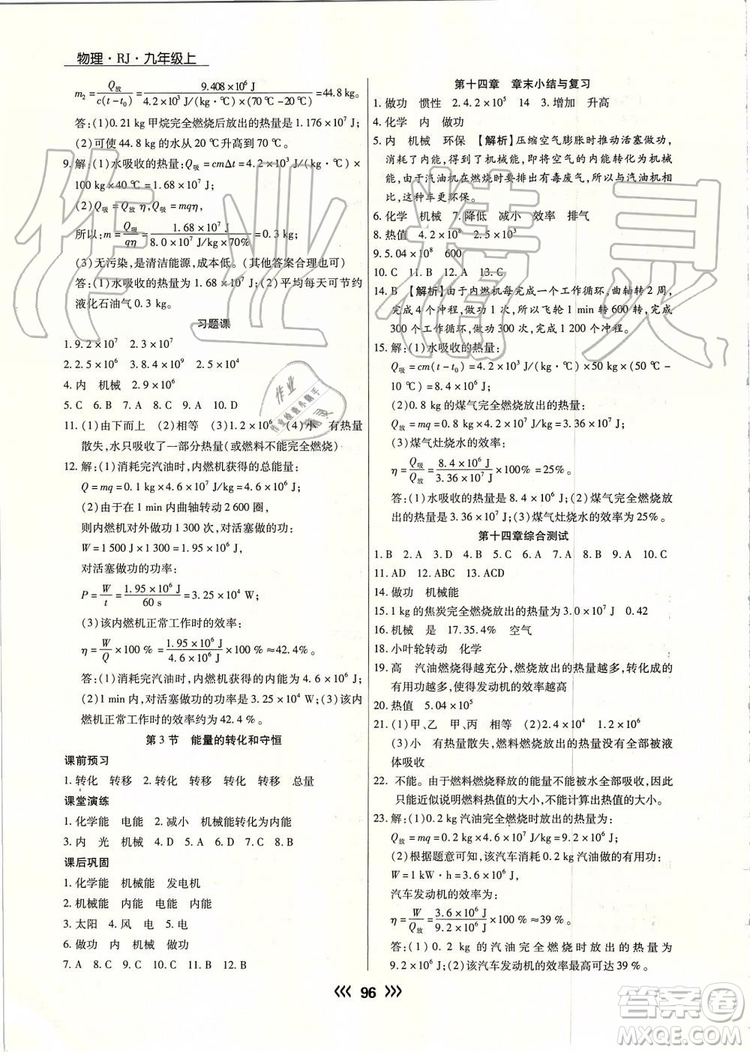 物理·RJ·九年级上
m₂=Q放/c(t-t₀)=9.408×10⁶ J/4.2×10³ J/(kg·℃)×(70℃-20℃)=44.8 kg。
答:(1)0.21 kg 甲烷完全燃烧后放出的热量是 1.176×10⁷ J
(2)可使 44.8 kg 的水从 20 ℃加热到 70 ℃。
9. 解:(1)水吸收的热量:Q吸=cmΔt=4.2×10³ J/(kg·℃)×
100 kg×40 ℃=1.68×10⁷ J
(2)Q吸=Q放 η,Q吸=mqη,
所以:m=Q吸/qη=1.68×10⁷ J/8.0×10⁷ J/kg×70%=0.3 kg。
(3)无污染,是清洁能源,成本低。(其他答案合理也可)
答:(1)水吸收的热量为 1.68×10⁷ J;(2)平均每天可节约
液化石油气 0.3 kg。
习题课
1. 9.2×10⁷ J
2. 2.5×10⁶ 3. 8.64×10⁵ 2.9×10⁷
4. 内 机械 2.7×10⁷ 30%
5. C 6. C 7. B 8. C 9. A 10. D
11. (1)由下而上 (2)相等 (3)2.1×10⁴ (4)水 有热量
散失,水只吸收了一部分热量(或燃料不能完全燃烧)
12. 解:(1)消耗完汽油时,内燃机获得的总能量:
Q=mq=0.1 kg×4.6×10⁷ J/kg=4.6×10⁶ J;
(2)由于在 1 min 内曲轴转动 2 600 圈,
则内燃机对外做功 1 300 次,对活塞做的功:
W=1 500 J×1 300=1.95×10⁶ J,
对活塞做功的功率:
P=W/t=1.95×10⁶ J/60 s=3.25×10⁴ W;
(3)该内燃机正常工作时的效率:
η=W/Q×100 %=1.95×10⁶ J/4.6×10⁶ J×100 %≈42.4%。
答:(1)消耗完汽油时,内燃机获得的总能量为 4.6×10⁶ J;
(2)1 min 内,对活塞做功的功率是 3.25×10⁴ W;(3)该内
燃机正常工作时的效率为 42.4 %。
第 3 节 能量的转化和守恒
课前预习
1. 转化 转移 2. 转化 转移 转化 转移 总量
课堂演练
1. 化学能 电能 2. 减小 机械能转化为内能
3. 内 光 机械 4. B 5. D 6. C 7. C 8. A
课后巩固
1. 化学能 机械能 发电机
2. 机械能 内能 电能 内能
3. 太阳 4. 风 电 5. 电
6. 做功 内 机械 做功
7. A 8. C 9. D 10. C 11. B 12. D
第十四章 章末小结与复习
1. 做功 惯性 2. 4.2×10⁵ 14 3. 增加 升高
4. 化学 内 做功
5. 内 机械 环保 【解析】压缩空气膨胀时推动活塞做功,
消耗了内能,得到了机械能,即将空气的内能转化为机械
能,由于汽油机在燃烧时会排出有毒废气,所以与汽油机
相比,这种车更环保。
6. 化学 机械 7. 降低 减小 效率 排气
8. 热值 4.2×10⁸
9. 5.04×10⁸ 600
10. C 11. A 12. A 13. C
14. B 【解析】由于内燃机每完成一个工作循环,曲轴转 2 周,
完成 4 个冲程,做功 1 次,所以飞轮 1 min 转 600 转,完成
300 个工作循环,做功 300 次,完成 1 200 个冲程。
15. 解:(1)水吸收的热量:
Q吸=cm(t-t₀)=4.2×10³ J/(kg·℃)×50 kg×(50 ℃-
10 ℃)=8.4×10⁶ J。
(2)0.8 kg 的煤气完全燃烧放出的热量:
Q放=mq=0.8 kg×4.2×10⁷ J/kg=3.36×10⁷ J。
(3)煤气灶烧水的效率:
η=Q吸/Q放=8.4×10⁶ J/3.36×10⁷ J×100%=25%。
答:(1)水吸收的热量是 8.4×10⁶ J;(2)煤气完全燃烧放
出的热量是 3.36×10⁷ J;(3)煤气灶烧水的效率为 25 %。
第十四章综合测试
1. B 2. A 3. D 4. D 5. C 6. C 7. B 8. A 9. A 10. C
11. AD 12. AD 13. ACD
14. 做功 机械能
15. 1 kg 的焦炭完全燃烧放出的热量为 3.0×10⁷ J 0.42
16. 机械 是 17. 35.4% 空气
18. 小叶轮转动 化学
19. 高 汽油燃烧得越充分,燃烧放出的热量越多,转化成的
有用功越多,使得发动机的效率越高
20. 热值 5.04×10⁵
21. (1)甲、乙 甲、丙 相等 (2)2.4×10⁶
(3)小 有热量散失,燃料燃烧放出的热量没有全部被液
体吸收
22. 不能。由于燃料燃烧释放的能量不能被水全部吸收,因此
只能近似说明燃料热值的大小,不能说明具体数值。
23. 解:(1)0.2 kg 汽油完全燃烧时放出的热量为:
Q放=mq=0.2 kg×4.6×10⁷ J/kg=9.2×10⁶ J;
(2)根据题意可知,该汽车消耗 0.2 kg 汽油时所做的功为:
W=1 kW·h=3.6×10⁶ J,
汽车发动机的效率为:
η=W/Q放=3.6×10⁶ J/9.2×10⁶ J×100 %≈39 %。
答:(1)0.2 kg 的汽油完全燃烧时放出的热量为
9.2×10⁶ J;(2)该汽车发动机的效率大约可达到 39 %。
96
作业精灵
答案圈
MXQE.COM